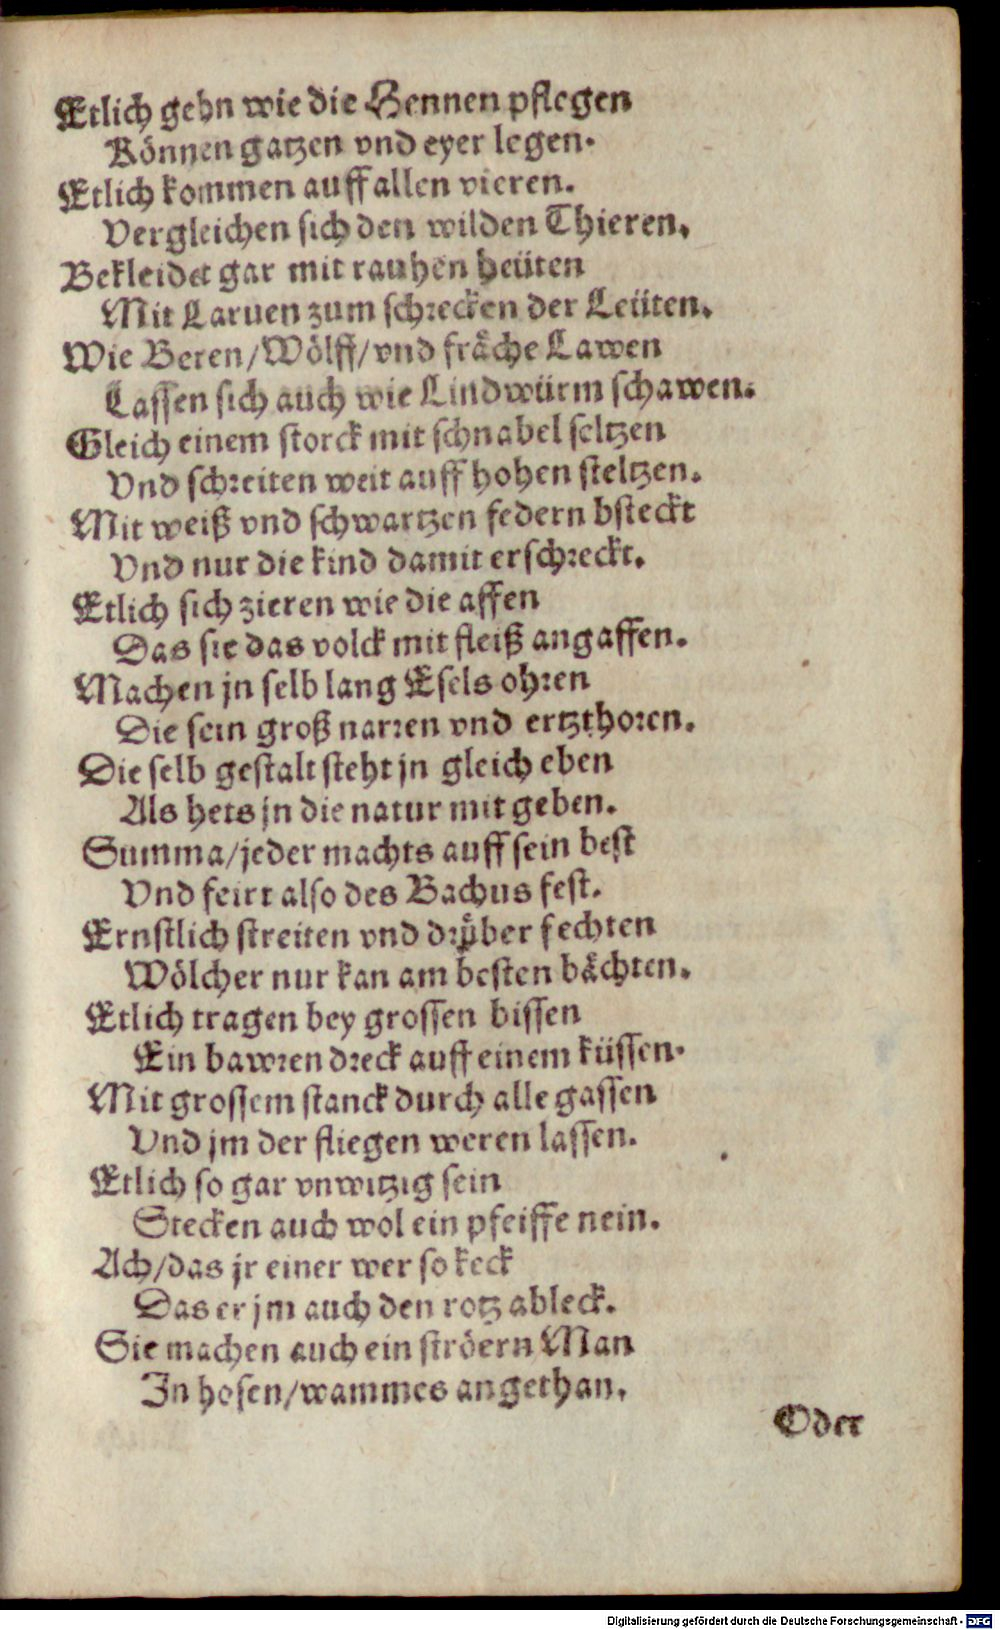 Etlich gehn wie die Hennen pflegen
Können gatzen vnd eyer legen.
Etlich kommen auff allen vieren.
Vergleichen sich den wilden Thieren.
Bekleidet gar mit rauhen heüten
Mit Laruen zum schrecken der Leüten.
Wie Beren/Wölff/vnd fräche Lawen
Lassen sich auch wie Lindwürm schawen.
Gleich einem storck mit schnabel seltzen
Vnd schreiten weit auff hohen steltzen.
Mit weiß vnd schwartzen federn bsteckt
Vnd nur die kind damit erschreckt.
Etlich sich zieren wie die affen
Das sie das volck mit fleiß angaffen.
Machen jn selb lang Esels ohren
Die sein groß narren vnd ertzthoren.
Die selb gestalt steht jn gleich eben
Als hets jn die natur mit geben.
Summa/jeder machts auff sein best
Vnd feirt also des Bachus fest.
Ernstlich streiten vnd drüber fechten
Wölcher nur kan am besten bächten.
Etlich tragen bey grossen bissen
Ein bawren dreck auff einem küssen.
Mit grossem stanck durch alle gassen
Vnd jm der fliegen weren lassen.
Etlich so gar vnwitzig sein
Stecken auch wol ein pfeiffe nein.
Ach/das jr einer wer so keck
Das er jm auch den rotz ableck.
Sie machen auch ein ströern Man
In hosen/wammes angethan.
Oder
Digitalisierung gefördert durch die Deutsche Forschungsgemeinschaft - DFG